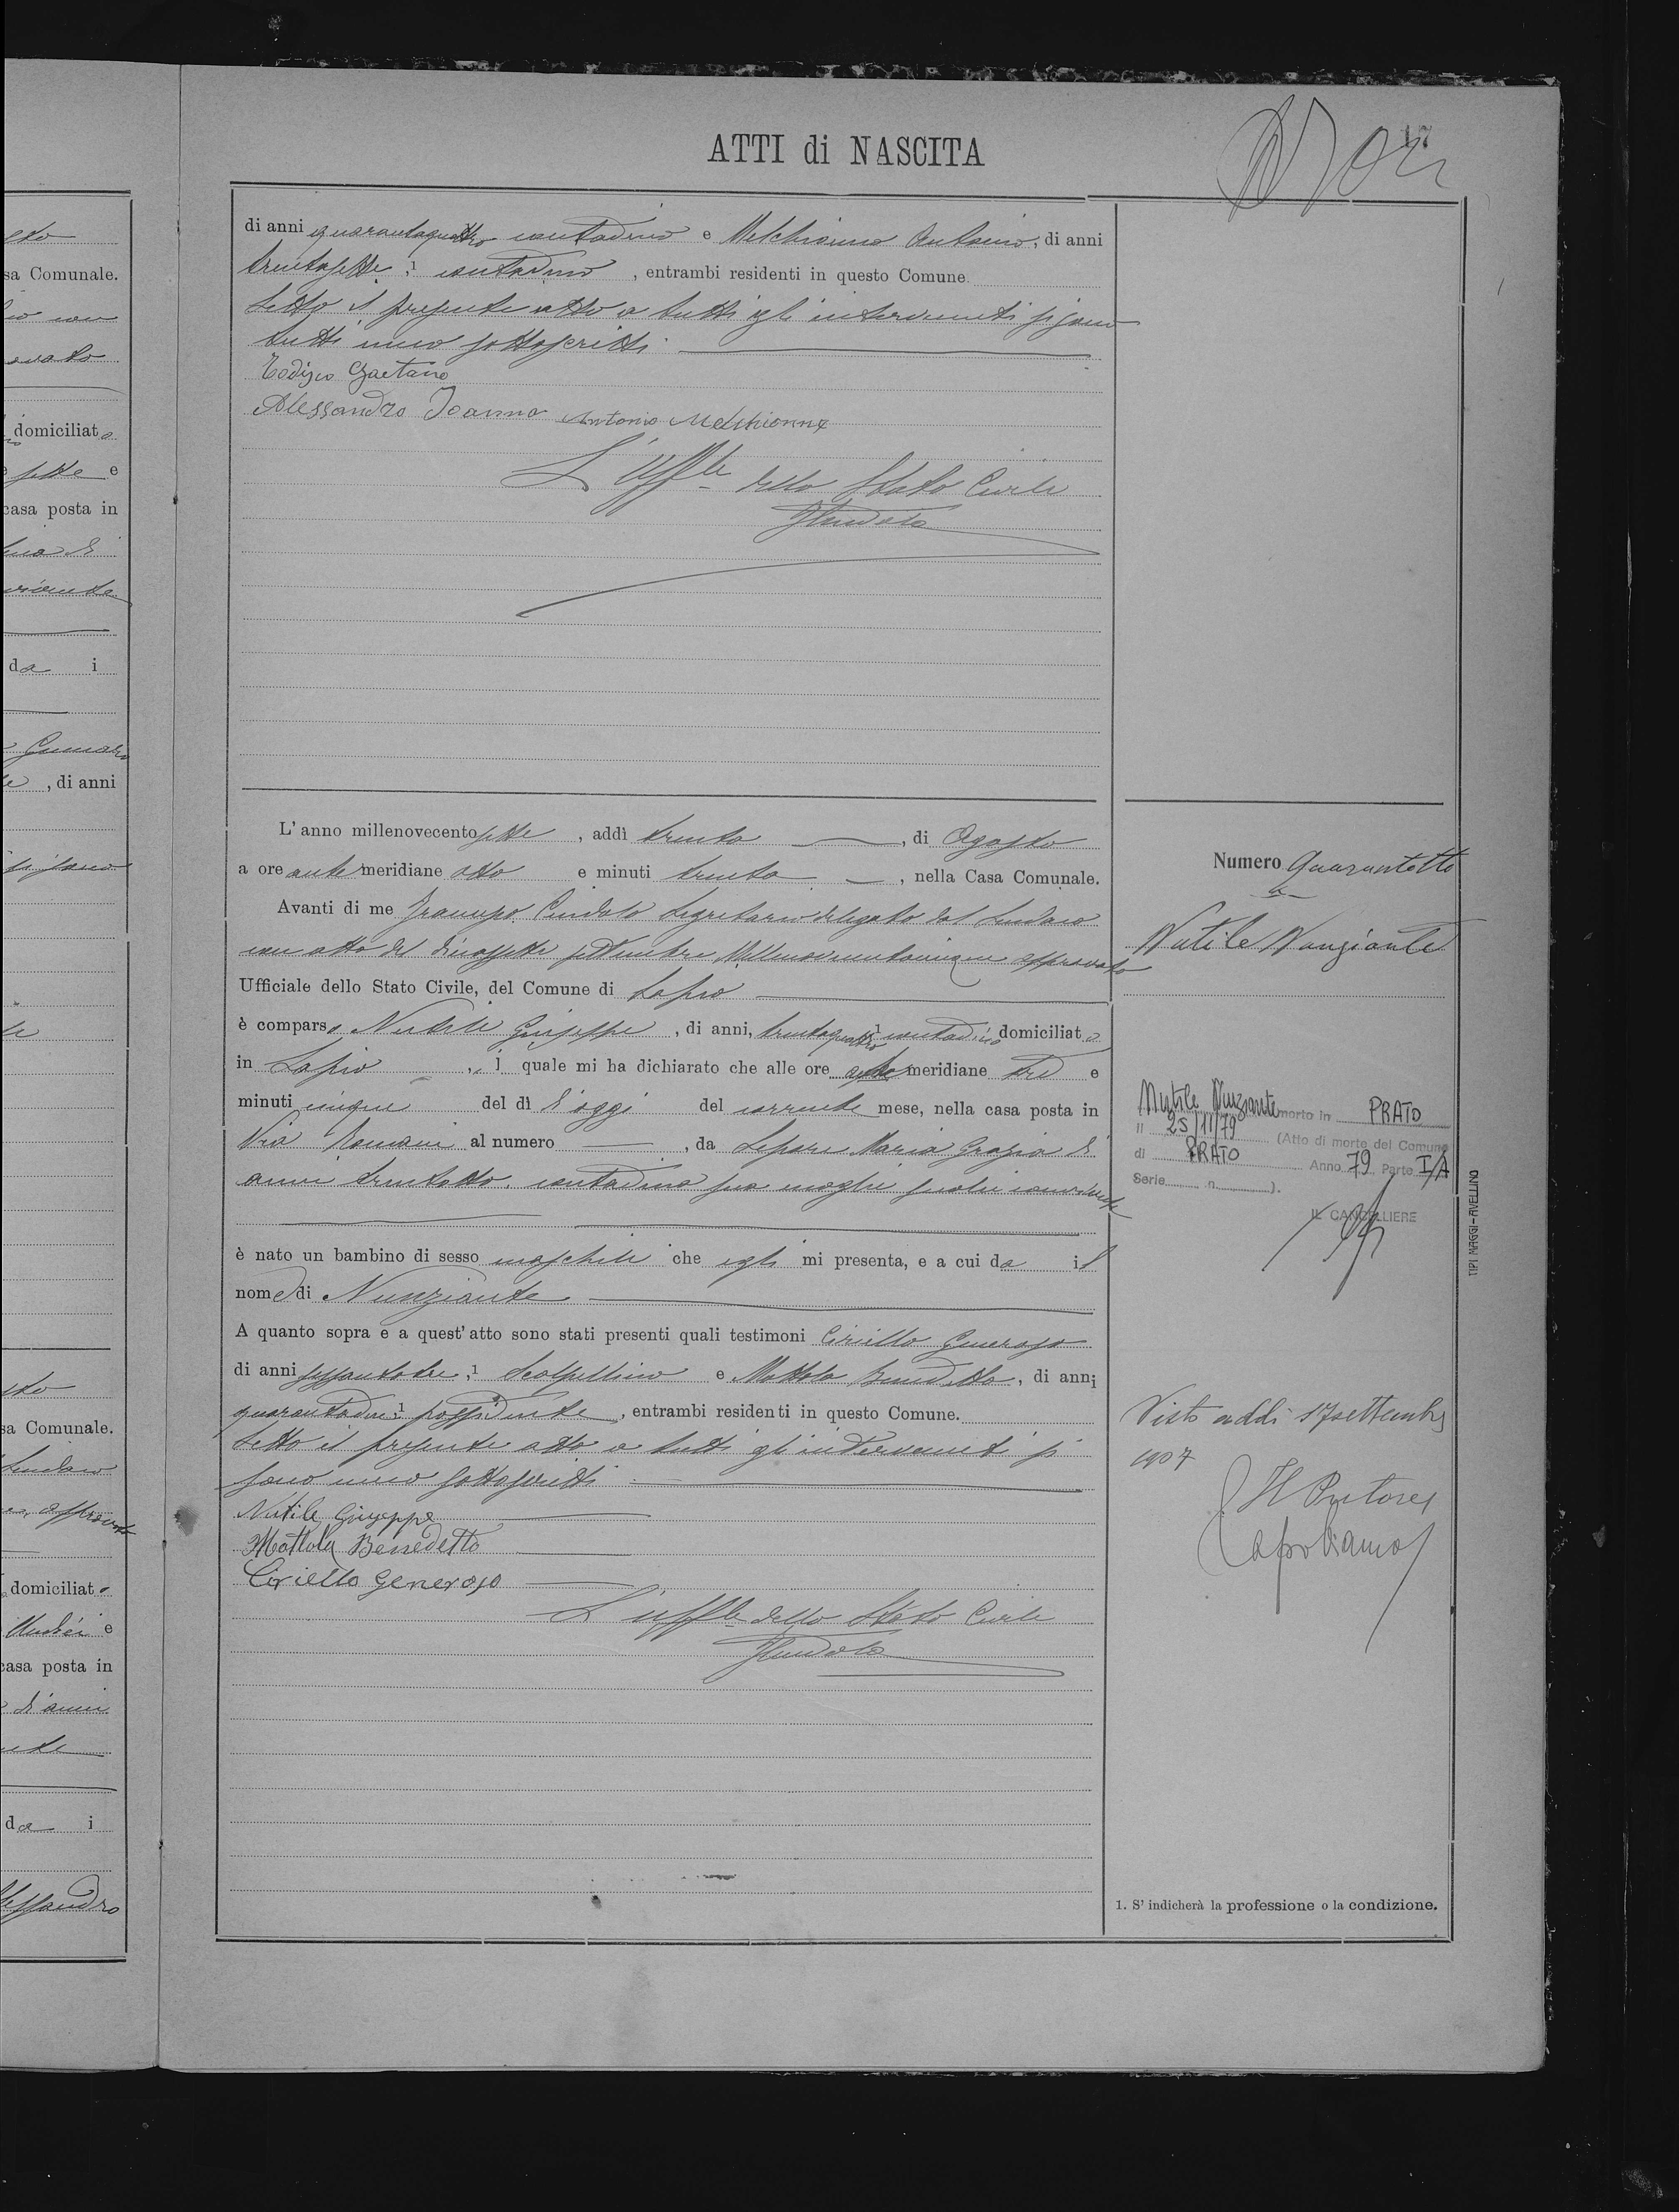 ATTI di NASCITA
17
di anni quarantaquattro contadino e Melchionna Antonio, di anni
trentasette, 1 contadino, entrambi residenti in questo Comune.
Letto il presente atto a tutti gli intervenuti si sono
tutti meco sottoscritti.
Todisco Gaetano
Alessandro Joanna Antonio Melchionna
L'Uff.le dello Stato Civile
L'anno millenovecentosette, addì trenta, di Agosto
a ore antemeridiane otto e minuti trenta, nella Casa Comunale.
Avanti di me Cindolo Segretario delegato dal Sindaco
con atto del diciassette settembre Millenovecentocinque approvato
Ufficiale dello Stato Civile, del Comune di Lapio
è comparso Nutile Giuseppe, di anni, trentaquattro 1 contadino domiciliato
in Lapio, il quale mi ha dichiarato che alle ore antemeridiane tre e
minuti cinque del dì d'oggi del corrente mese, nella casa posta in
Via Romani al numero, da Lepore Maria Grazia di
anni trentotto, contadina sua moglie seco lui convivente
è nato un bambino di sesso maschile che egli mi presenta, e a cui da il
nome di Nunziante
A quanto sopra e a quest'atto sono stati presenti quali testimoni Ciriello Generoso
di anni sessantatre, 1 Scalpellino e Mottola Benedetto, di anni
quarantadue, 1 possidente, entrambi residenti in questo Comune.
Letto il presente atto a tutti gli intervenuti si
sono meco sottoscritti.
Nutile Giuseppe
Mottola Benedetto
Ciriello Generoso
L'uff.le dello Stato Civile
Numero Quarantotto
Nutile Nunziante
Nutile Nunziante morto in PRATO
il 25/11/79 (Atto di morte del Comune
di PRATO Anno 79 Parte I/A
Serie n. ).
IL CANCELLIERE
Visto addì 17 settembre
1907
Il Pretore
TIP. MAGGI-AVELLINO
1. S'indicherà la professione o la condizione.
sa Comunale.
domiciliato
sette e
casa posta in
da i
, di anni
si sono
sa Comunale.
domiciliato
e
casa posta in
d'anni
da i